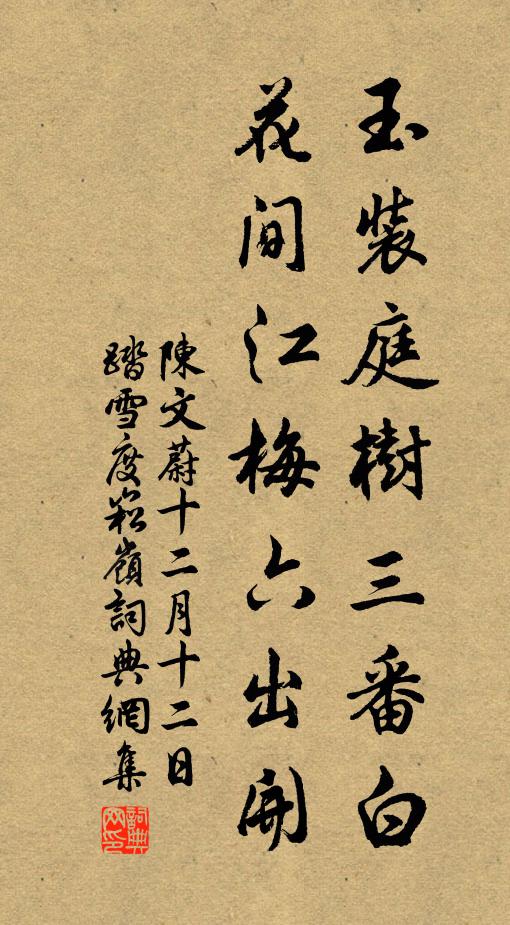 玉裝庭樹三番白
花間江梅六出開
陳文蔚十二月十二日
踏雪度崧嶺詞典網集
詞典
网印